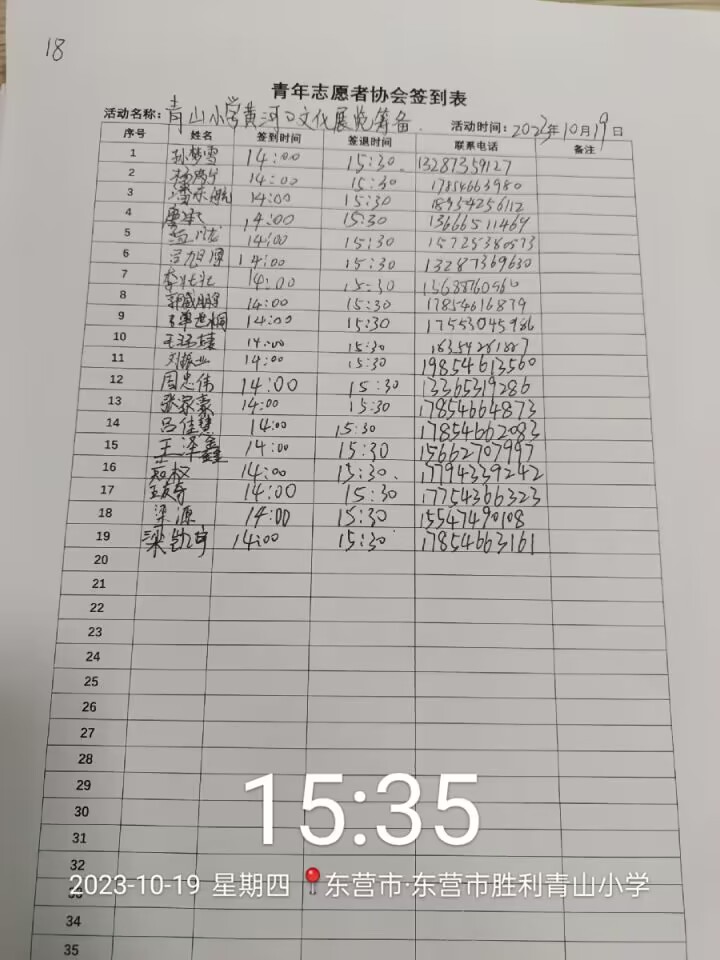 18
青年志愿者协会签到表
活动名称：青山小学黄河口文化展览筹备. 活动时间：2023年10月19日
序号 姓名 签到时间 签退时间 联系电话 备注
1 孙梦雪 14:00 15:30 13287359127
2 14:00 15:30 17854663980
3 14:00 15:30 18954256112
4 14:00 15:30 13666511469
5 14:00 15:30 15725380573
6 14:00 15:30 13287369630
7 李壮壮 14:00 15:30
8 14:00 15:30 17854616879
9 14:00 15:30 17553045986
10 14:00 15:30
11 刘振业 14:00 15:30 19854613560
12 周忠伟 14:00 15:30 13365319286
13 张家豪 14:00 15:30 17854664873
14 吕佳慧 14:00 15:30 17854662083
15 王泽鑫 14:00 15:30 15662707997
16 14:00 15:30. 17794339242
17 14:00 15:30 17754366323
18 梁源 14:00 15:30 15547490108
19 梁凯宇 14:00 15:30 17854663161
20
21
22
23
24
25
26
27
28
29
30
31
32
33
34
35
15:35
2023-10-19 星期四 东营市·东营市胜利青山小学